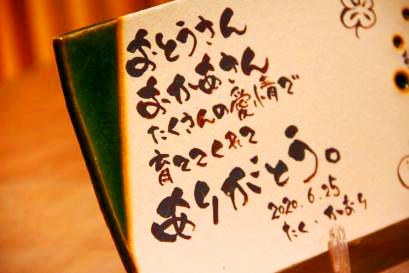 おとうさん
おかあさん
たくさんの愛情で
育ててくれて
ありがとう。
2020.6.25
たく・かおり